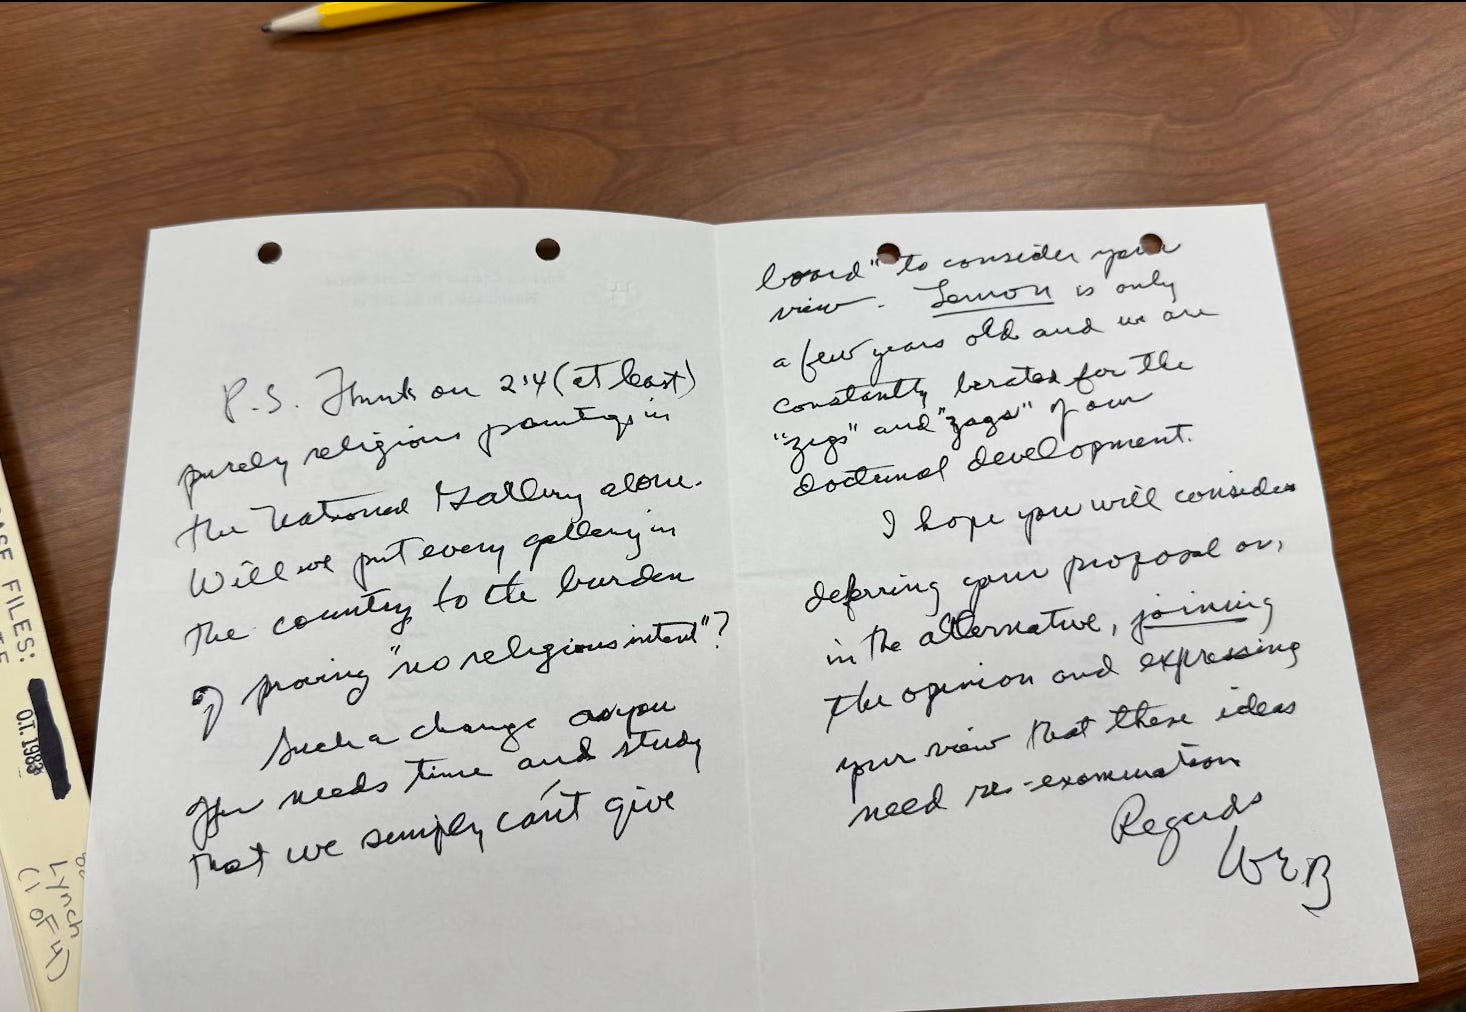 P.S. Think on 214 (at least)
purely religious paintings in
the National Gallery alone.
Will we put every gallery in
the country to the burden
of proving "no religious intent"?
Such a change as you
offer needs time and study
that we simply can't give
board" to consider your
view. Lemon is only
a few years old and we are
constantly berated for the
"zigs" and "zags" of our
doctrinal development.
I hope you will consider
deferring your proposal or,
in the alternative, joining
the opinion and expressing
your view that these ideas
need re-examination
Regards
WEB
CASE FILES:
O.T. 1983
Lynch
(1 of 4)